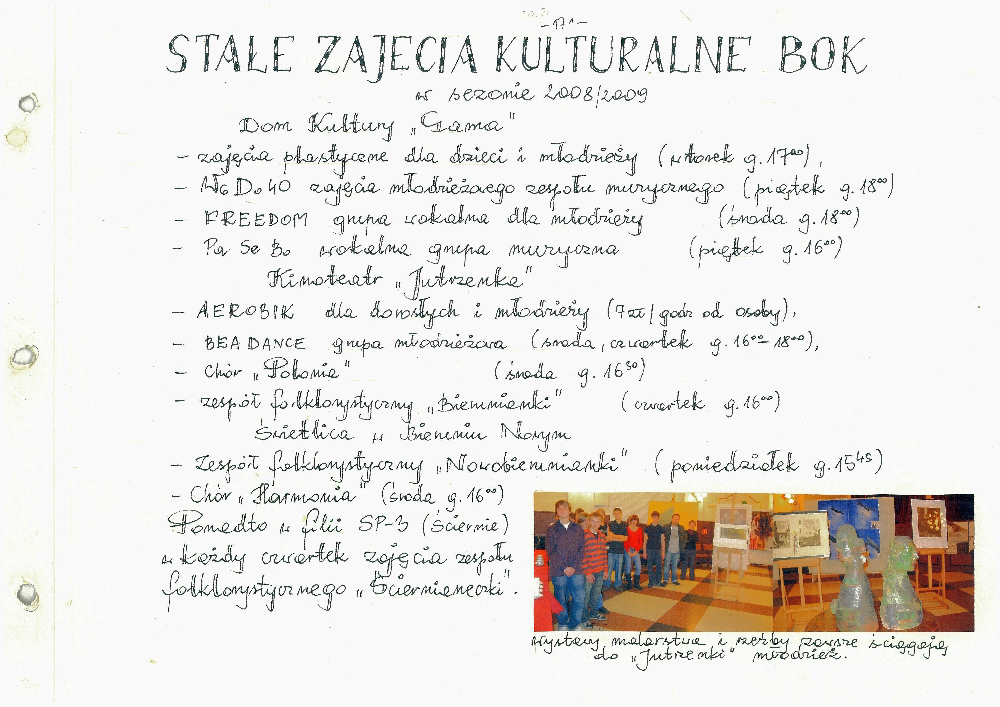 - 171 -
STAŁE ZAJĘCIA KULTURALNE BOK
w sezonie 2008/2009
Dom Kultury „Gama"
- zajęcia plastyczne dla dzieci i młodzieży (wtorek g. 17⁰⁰),
- zajęcia młodzieżowego zespołu muzycznego (piątek g. 18⁰⁰)
- FREEDOM grupa wokalna dla młodzieży (środa g. 18⁰⁰)
- Pa Se Bo wokalna grupa muzyczna (piątek g. 16⁰⁰)
Kinoteatr „Jutrzenka"
- AEROBIK dla dorosłych i młodzieży (7zł/godz od osoby),
- BEA DANCE grupa młodzieżowa (środa, czwartek g. 16⁰⁰ - 18⁰⁰),
- Chór „Polonia" (środa g. 16³⁰)
- zespół folklorystyczny „Bierunianki" (czwartek g. 16⁰⁰)
Świetlica w Bieruniu Nowym
- Zespół folklorystyczny „Nowobierunianki" (poniedziałek g. 15⁴⁵)
- Chór „Harmonia" (środa g. 16⁰⁰)
Ponadto w filii SP-3 (Ściernie)
w każdy czwartek zajęcia zespołu
folklorystycznego „Ściernianeczki".
Wystawy malarstwa i rzeźby zawsze ściągają
do „Jutrzenki" młodzież.